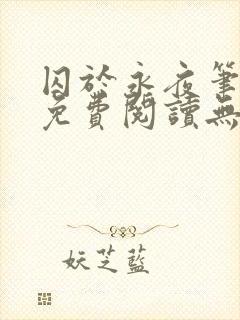 囚於永夜筆
免費閱讀無
妖芝藍